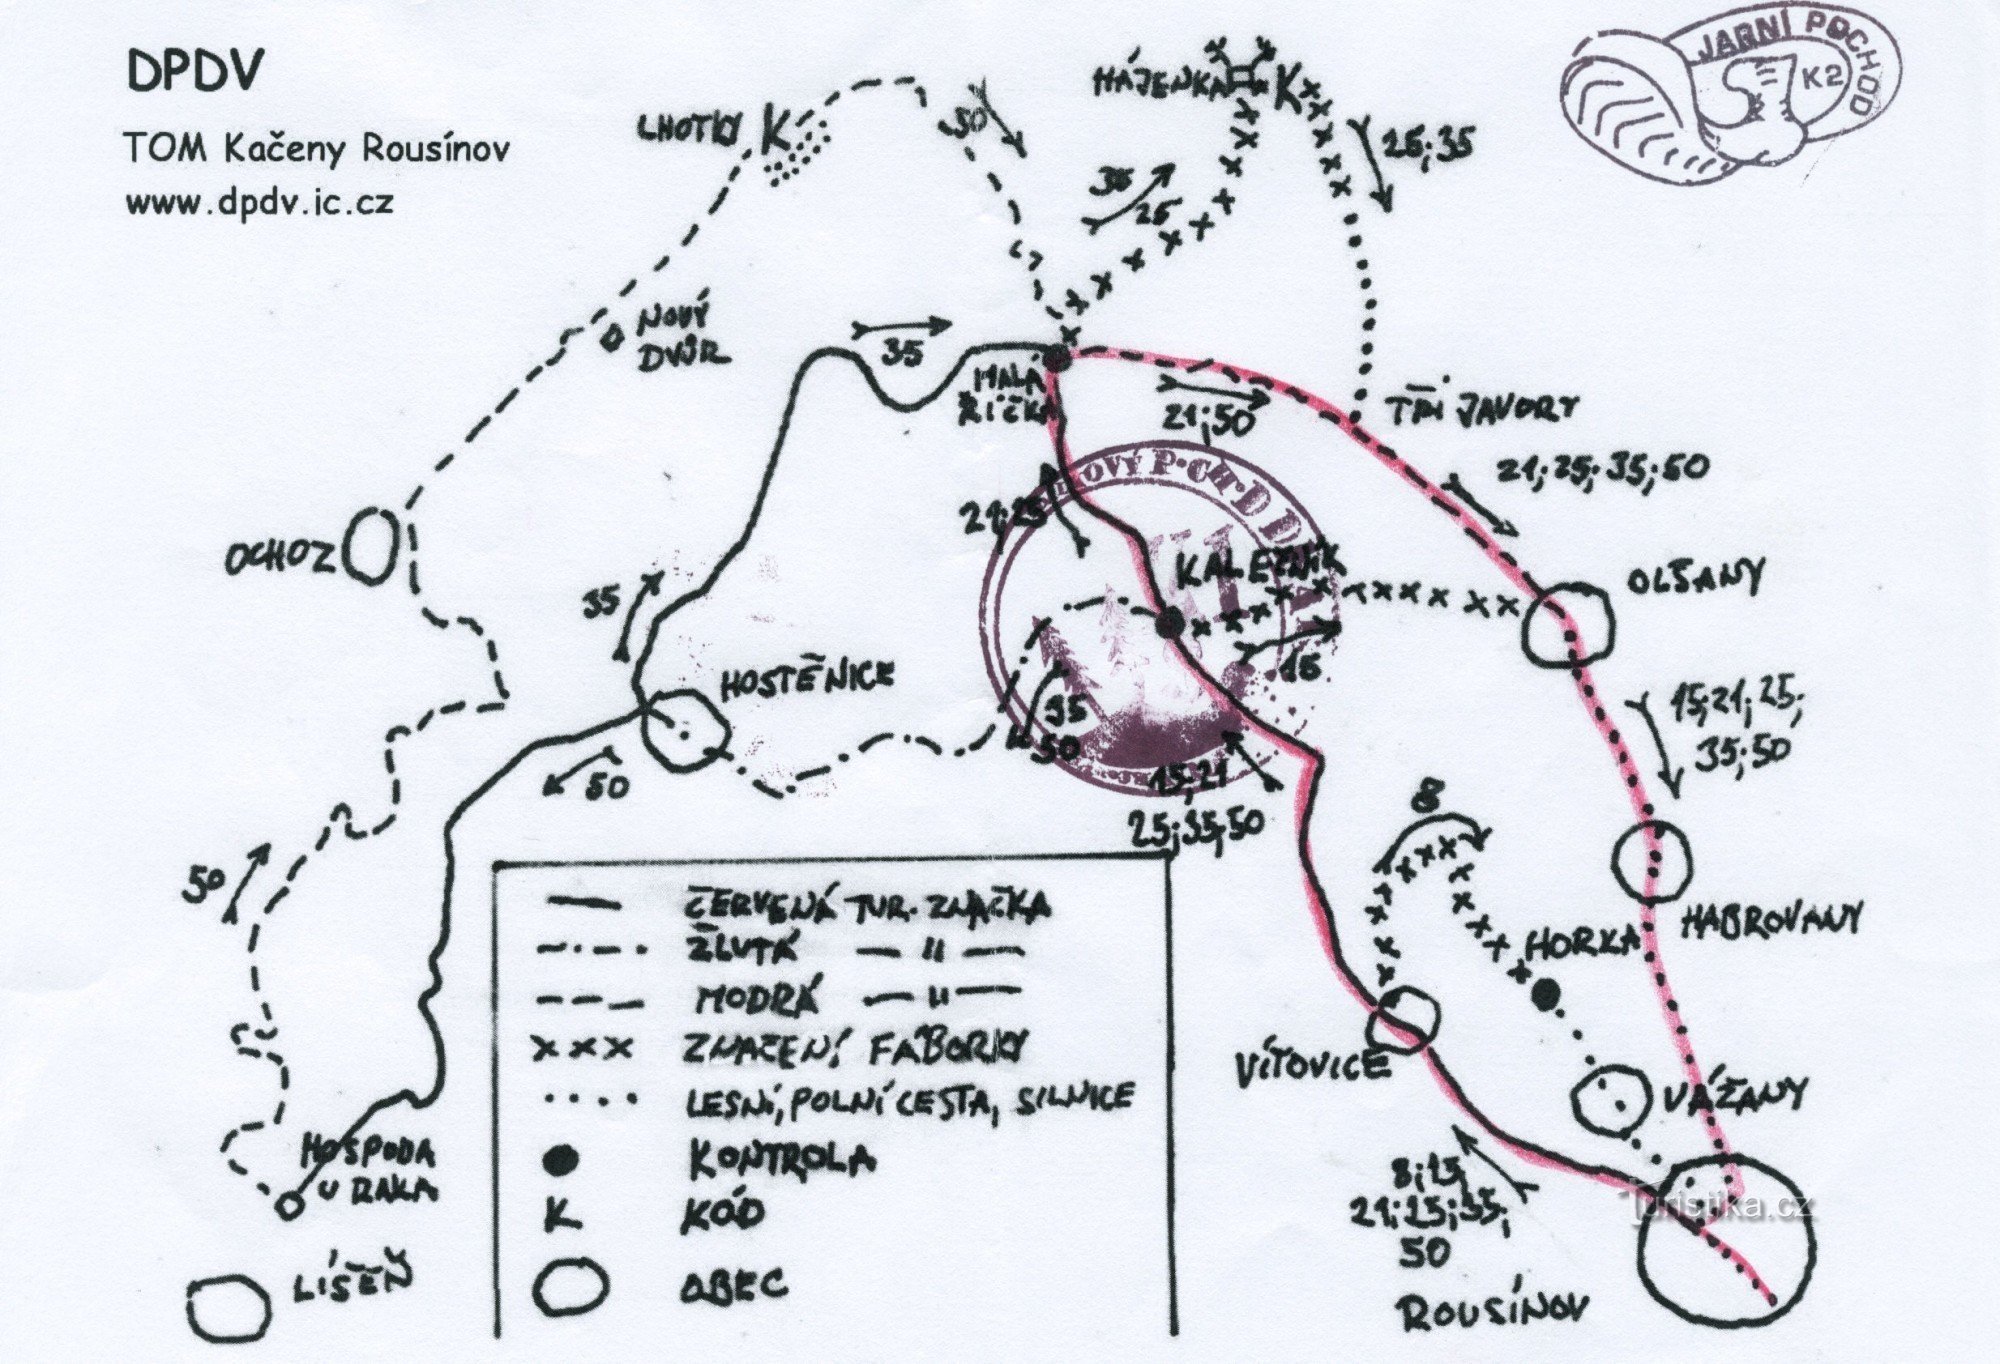 DPDV
TOM Kačeny Rousínov
www.dpdv.ic.cz
JARNÍ POCHOD
K2
HÁJENKA K
LHOTKY K
50
25;35
35
25
NOVÝ
DVŮR
35
MALÁ
ŘÍČKA
21;50
TŘI JAVORY
21;25;35;50
21;25
OCHOZ
KALEČNÍK
OLŠANY
35
15
HOSTĚNICE
35
50
15;21;25;
35;50
50
15;21
25;35;50
8
50
HORKA
HABROVANY
VÍTOVICE
VÁŽANY
8;15
21;25;35;
50
ROUSÍNOV
HOSPODA
U RAKA
LÍŠEŇ
ČERVENÁ TUR. ZNAČKA
ŽLUTÁ — " —
MODRÁ — " —
ZNAČENÍ FÁBORKY
LESNÍ, POLNÍ CESTA, SILNICE
KONTROLA
K KÓD
OBEC
Turistika.cz